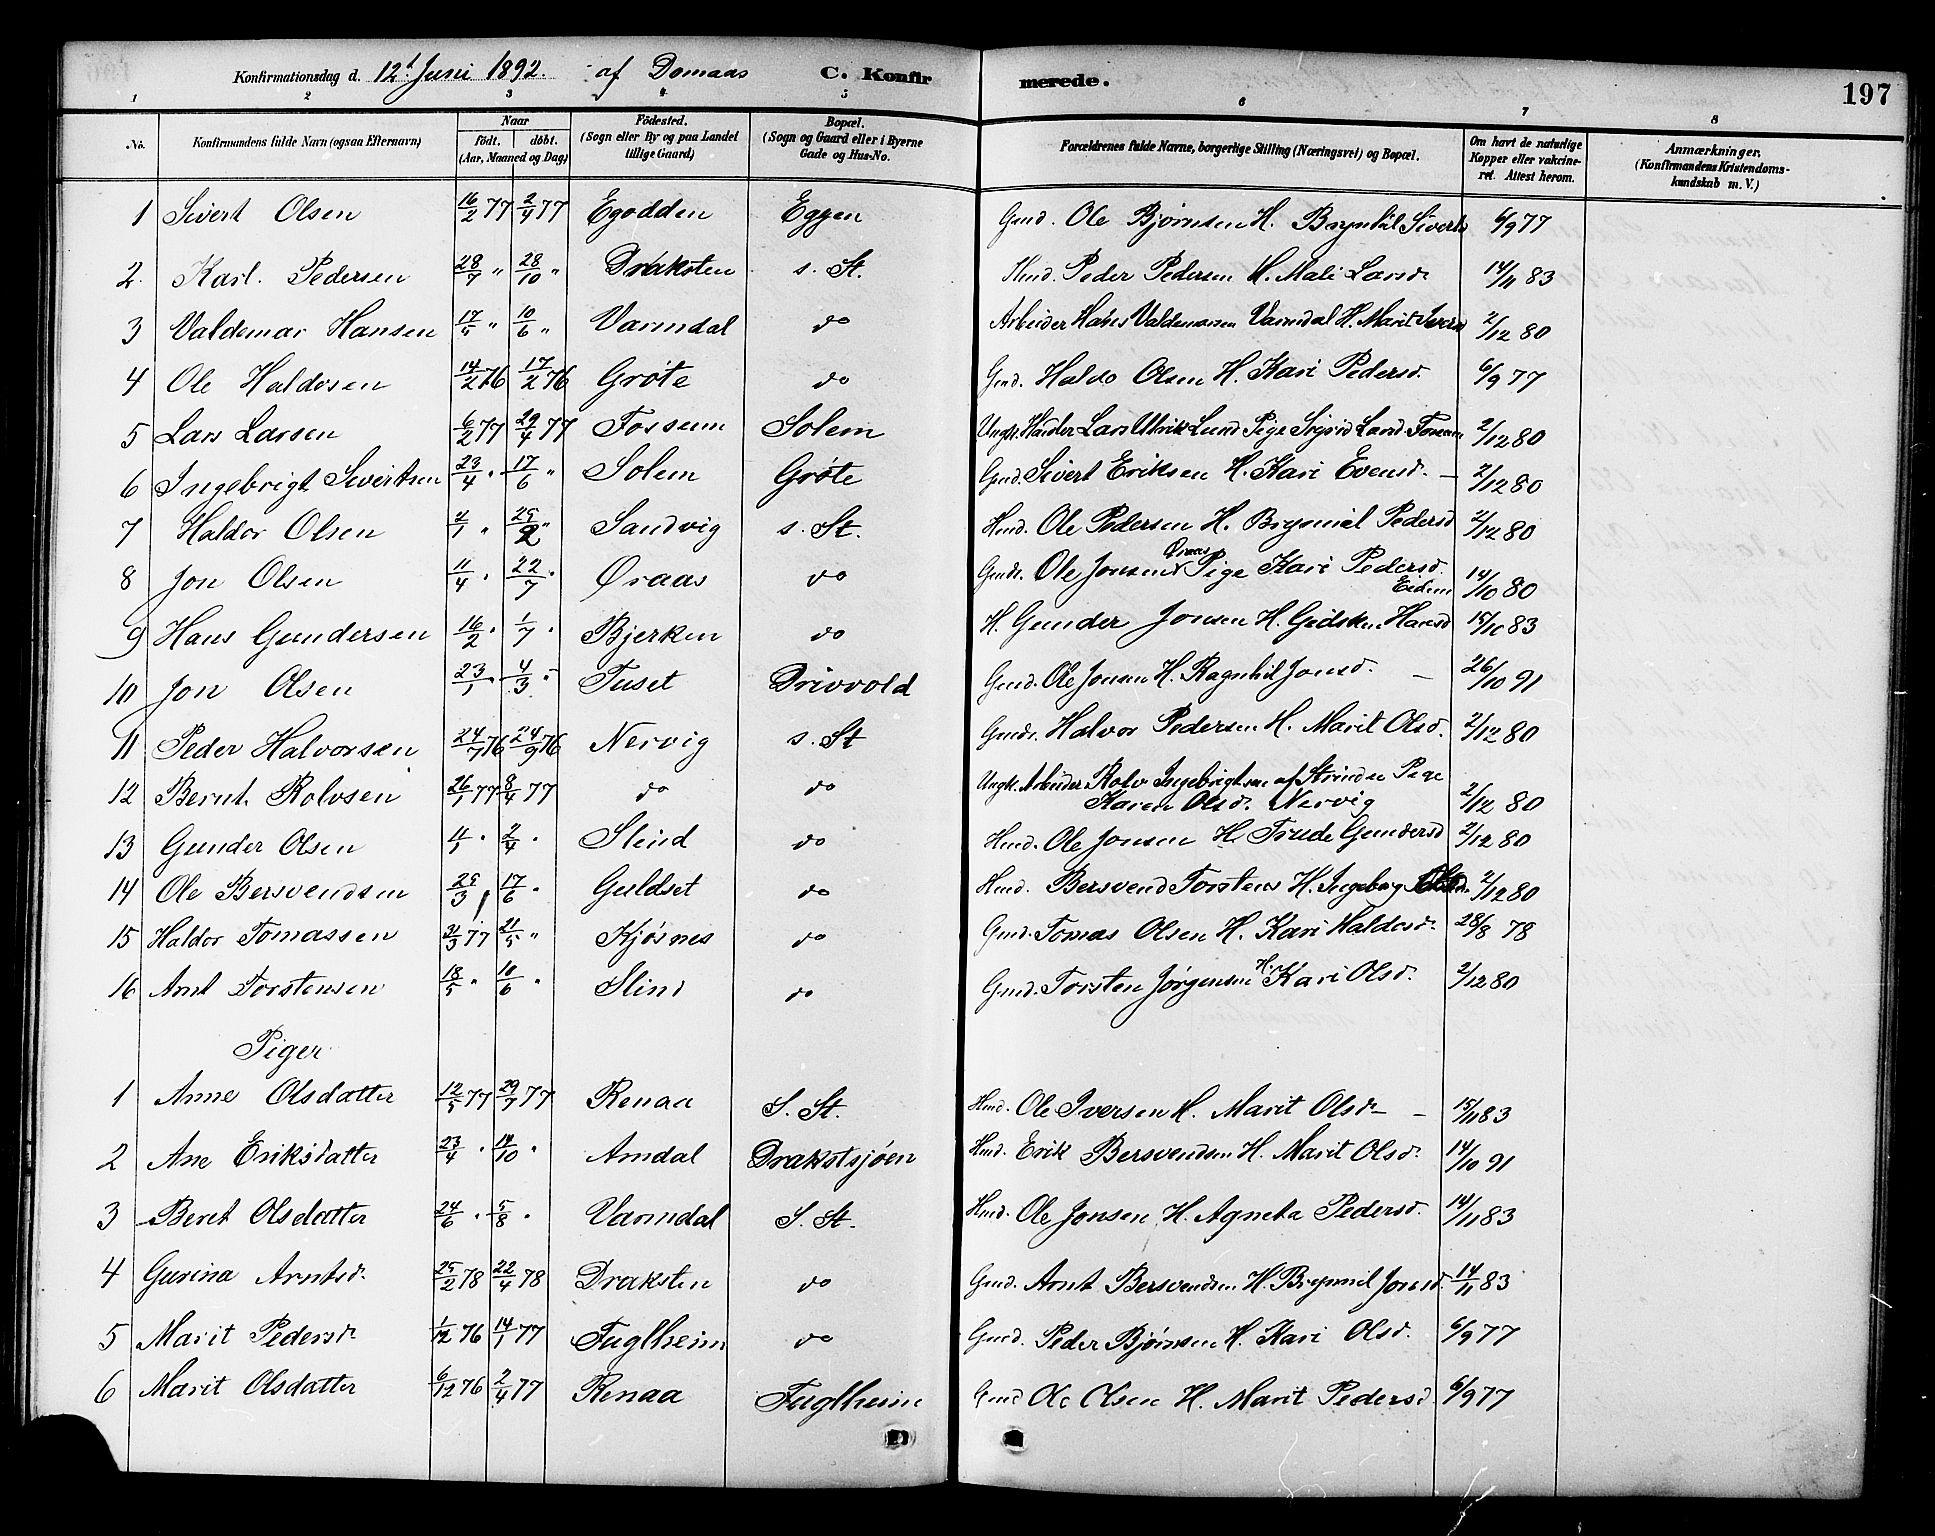 Konfirmationsdag d. 12t Juni 1892. af Domaas C. Konfir merede. 197
1 2 3 4 5 6 7 8
No. Konfirmandens fulde Navn (ogsaa Efternavn) Naar født. døbt. (Aar, Maaned og Dag) Födested. (Sogn eller By og paa Landet tillige Gaard) Bopæl. (Sogn og Gaard eller i Byerne Gade og Hus-No. Forældrenes fulde Navne, borgerlige Stilling (Næringsvei) og Bopæl. Om havt de naturlige Kopper eller vakcineret. Attest herom. Anmærkninger. (Konfirmandens Kristendomskundskab m. V.)
1 Sivert Olsen 16/2 77 2/4 77 Egodden Eggen Gmd. Ole Bjørnsen H. Brynhil Siverts 6/9 77
2. Karl. Pedersen 28/7 " 28/10 " Draksten s. St. Hmd. Peder Pedersen H. Mali Larsd. 14/11 83
3 Valdemar Hansen 17/5 " 10/6 " Varmdal do Arbeider Hans Valdemarsen Varmdal H. Marit Iversd 2/12 80
4 Ole Haldosen 14/2 76 17/2 76 Grøte do Gmd. Haldo Olsen H. Kari Pedersd. 6/9 77
5 Lars Larsen 6/2 77 29/4 77 Fossum Solem Ungk. Handler Lars Ulrik Lund Pige Sigrid Larsd. Fossum 2/12 80
6 Ingebrigt Sivertsen 23/4 " 17/6 " Solem Grøte Gmd. Sivert Eriksen H. Kari Evensd. – 2/12 80
7 Haldor Olsen 2/1 " 25/2 " Sandvig s. St. Hmd. Ole Pedersen H. Brynnil Pedersd 2/12 80
8 Jon Olsen 11/4 " 22/7 " Øraas do Gmdr. Ole Jonsen Øraas Pige Kari Pedersd. Eidem 14/10 80
9 Hans Gundersen 16/2 " 1/7 " Bjerken do H. Gunder Jonsen H. Gidsken Hansd 15/11 83
10 Jon Olsen 23/1 " 4/3 " Tuset Drivvold Gmd. Ole Jonsen H. Ragnhil Jonsd. – 26/10 91
11 Peder Halvorsen 24/7 76 24/9 76 Nervig s. St Gmdr. Halvor Pedersen H. Marit Olsd. 2/12 80
12 Bernt Rolvsen 26/1 77 8/4 77 do do Ungk. Arbeider Rolv Ingebrigtsen af Strinden Pige Karen Olsd. Nervig 2/12 80
13 Gunder Olsen 2/4 " Slind do Hmd. Ole Jonsen H. Trude Gundersd 2/12 80
14 Ole Bersvendsen 25/3 17/6 " Guldset do Hmd. Bersvend Torstens H. Ingeborg 2/12 80
15 Haldor Tomassen 31/3 77 21/5 " Kjøsnes do Gmd. Tomas Olsen H. Kari Haldosd. 28/8 78
16 Arnt Torstensen 18/5 " 10/6 " Slind do Gmd. Torsten Jørgensen H. Kari Olsd. 2/12 80
Piger
1 Anne Olsdatter 12/5 77 29/7 77 Renaa S. St. Hmd. Ole Iversen H. Marit Olsd – 15/11 83
2 Ane Eriksdatter 23/4 " 14/10 " Amdal Drakstsjøen Hmd. Erik Bersvendsen H. Marit Olsd. 14/10 91
3 Beret Olsdatter 24/6 " 5/8 " Varmdal S. St. Hmd. Ole Jonsen H. Agneta Pedersd. 14/11 83
4 Gurina Arntsd. 25/2 78 22/4 78 Draksten do Gmd. Arnt Bersvendsen H. Brynnil Jonsd. 14/11 83
5 Marit Pedersd. 1/12 76 14/1 77 Fuglheim do Gmd. Peder Bjørnsen H. Kari Olsd. 6/9 77
6 Marit Olsdatter 6/12 76 2/4 77 Renaa Fuglheim Gmd Ole Olsen H. Marit Pedersd. 6/9 77